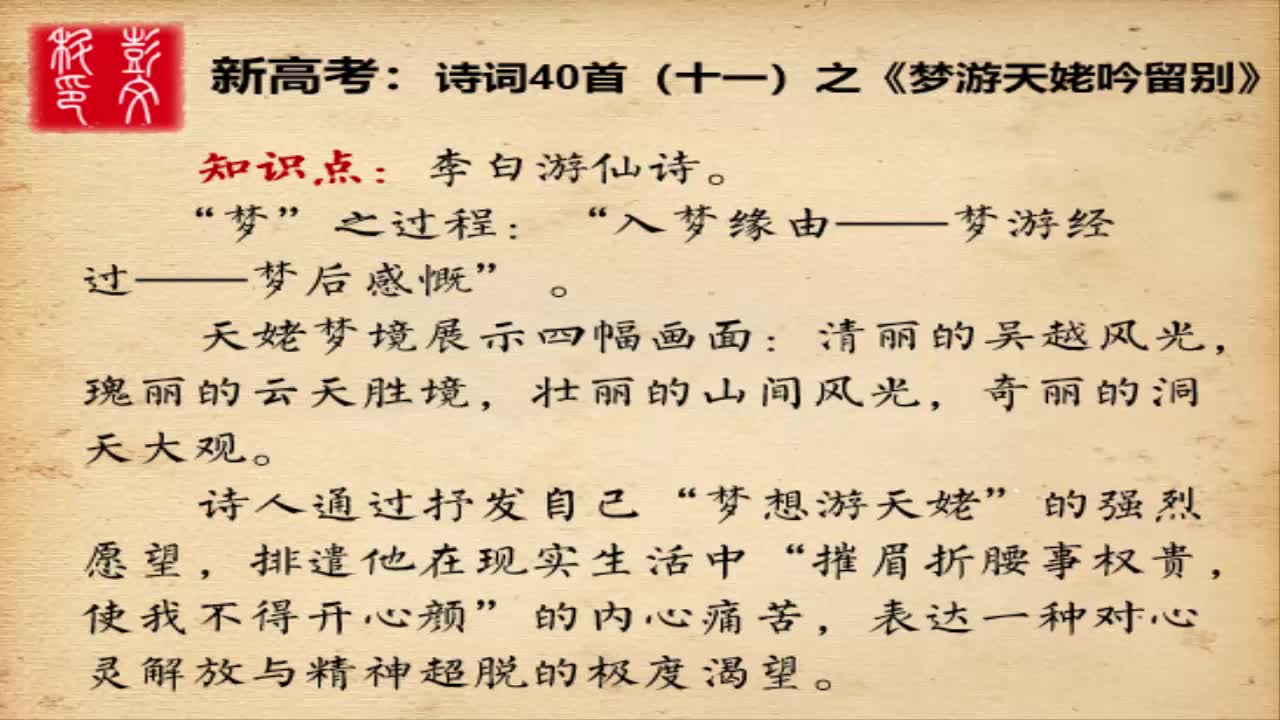 彭文
私印
新高考：诗词40首（十一）之《梦游天姥吟留别》
知识点：李白游仙诗。
“梦”之过程：“入梦缘由——梦游经
过——梦后感慨”。
天姥梦境展示四幅画面：清丽的吴越风光，
瑰丽的云天胜境，壮丽的山间风光，奇丽的洞
天大观。
诗人通过抒发自己“梦想游天姥”的强烈
愿望，排遣他在现实生活中“摧眉折腰事权贵，
使我不得开心颜”的内心痛苦，表达一种对心
灵解放与精神超脱的极度渴望。